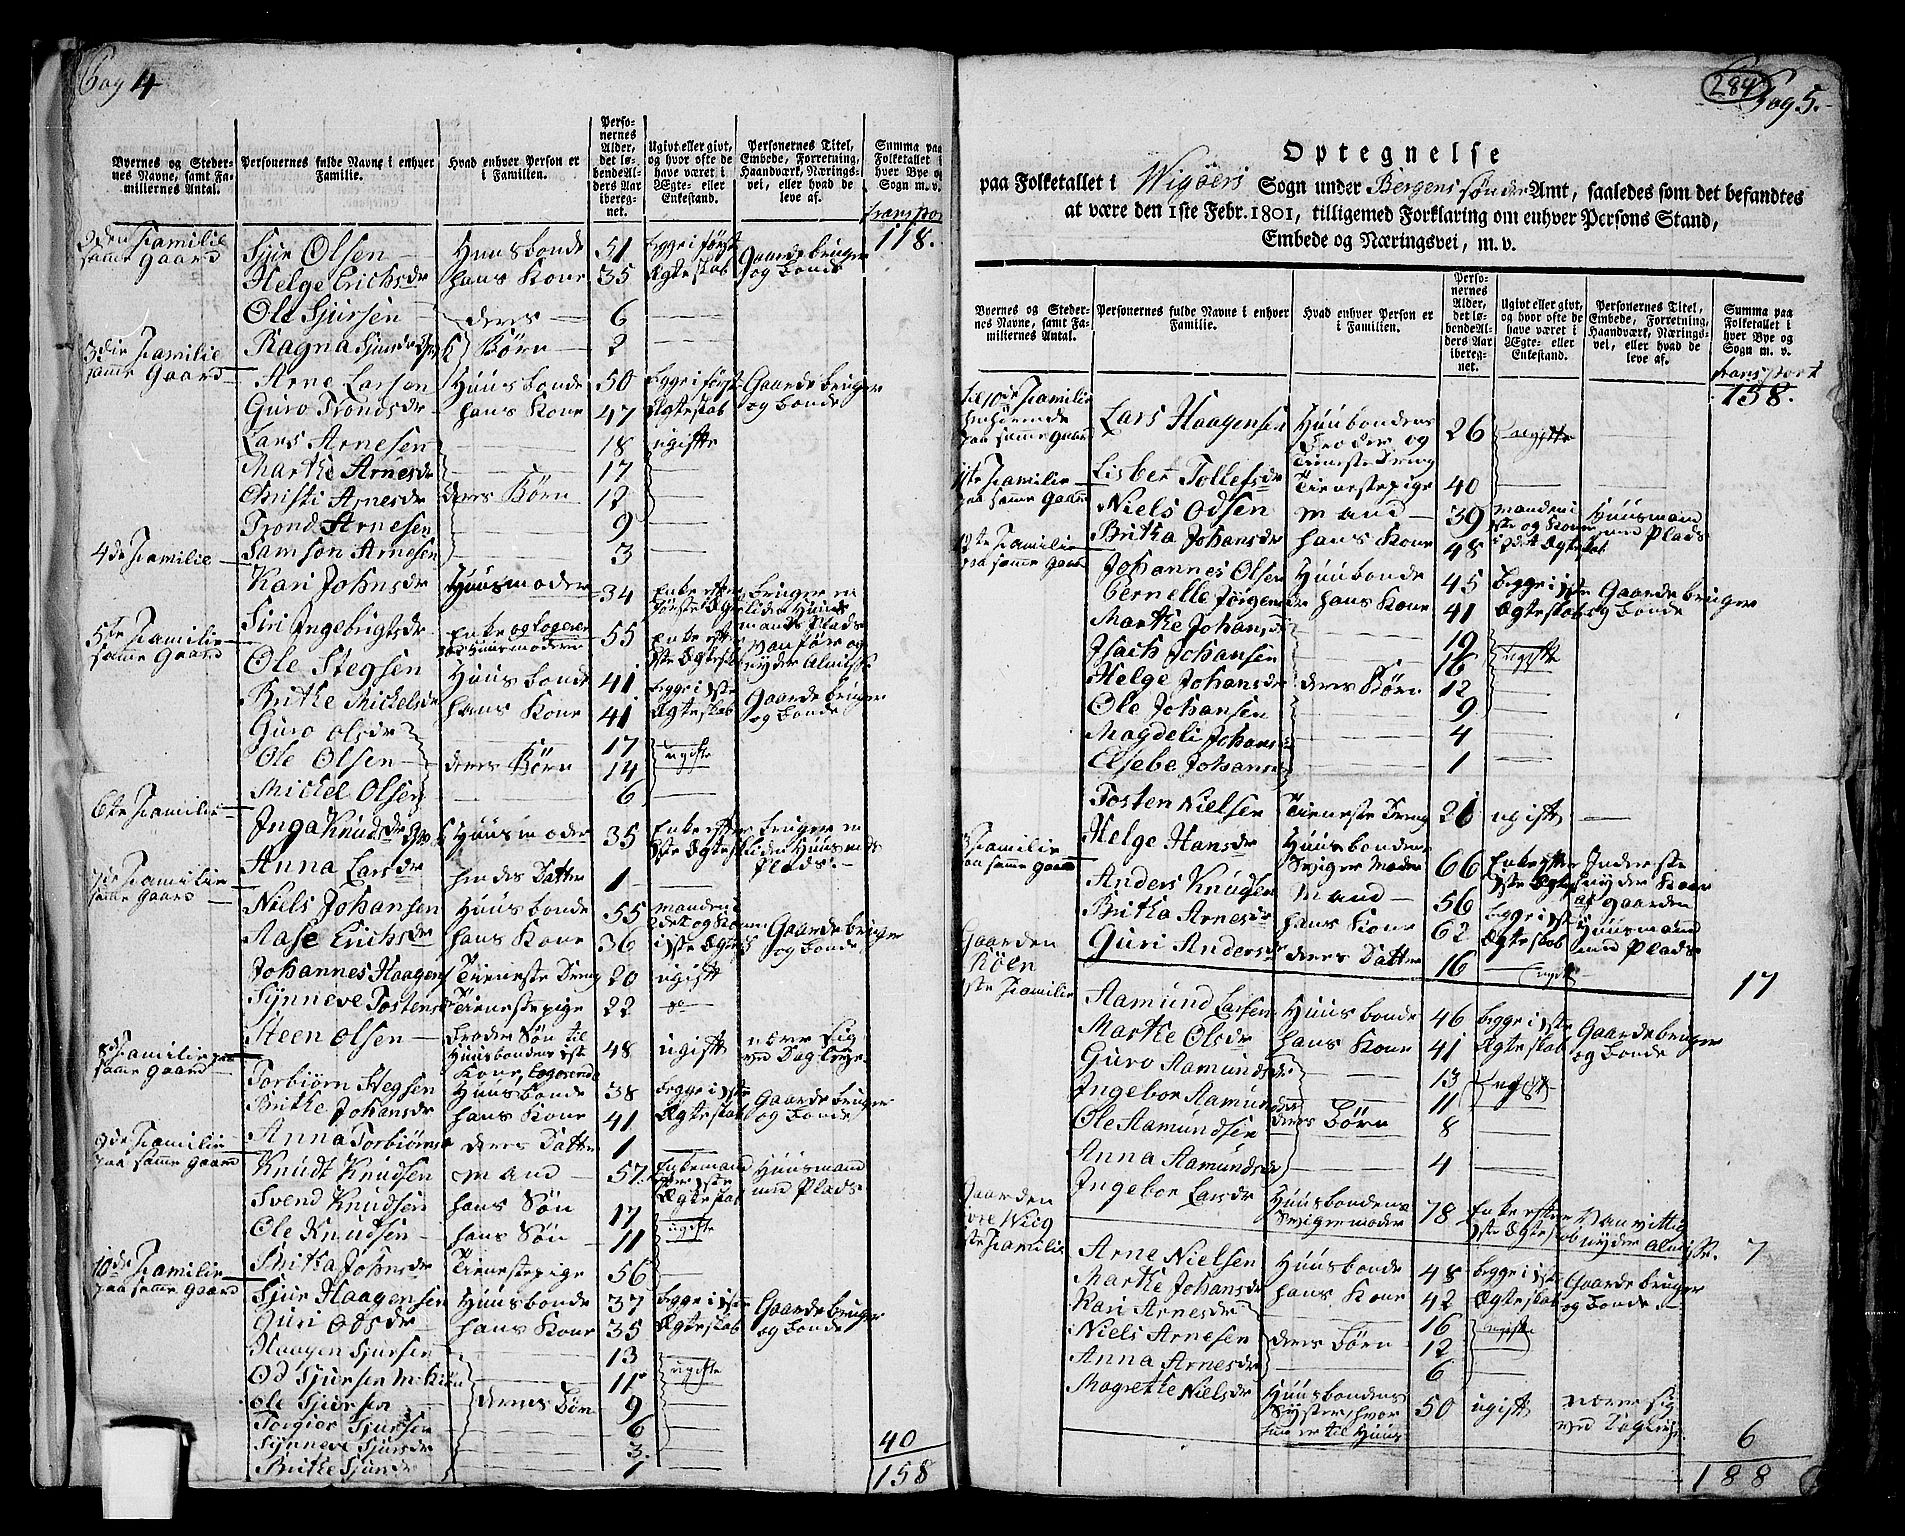 Pag 4
Byernes og Steder-
nes Navne, samt Fa-
miliernes Antal.
Personernes fulde Navne i enhver
Familie.
Hvad enhver Person er
i Familien.
Perso-
nernes
Alder,
det lø-
bende Al-
ders Aar
ibereg-
net.
Ugivt eller givt,
og hvor ofte de
have været i
Ægte- eller
Enkestand.
Personernes Titel,
Embede, Forretning,
Haandværk, Nærings-
vei, eller hvad de
leve af.
Summa paa
Folketallet i
hver Bye og
Sogn m. v.
transport
118.
2den Familie samme Gaard
Sjur Olsen Huusbonde 51 begge i først Gaardebruger
Helge Erichsdr hans Kone 35 Ægteskab og bonde
Ole Sjursen deres 6
Ragna Sjursdr Børn 2
3die Familie samme Gaard
Arne Larsen Huusbonde 50 begge i først Gaardebruger
Guro Trondsdr hans Kone 47 Ægteskab og bonde
Lars Arnesen 18 ugifte
Marthe Arnesdr 17
Christi Arnesdr deres Børn 12
Trond Arnesen 9
Samson Arnesen 3
4de Familie
Kari Johnsdr Huusmoder 34 Enke efter bruger en
første Ægte liden Huus
mands Plads
Siri Ingebrigtsdr Enke og logerer 55 Enke efter Vanføre og
hos Huusmoderen 1ste Ægteskab nyder Almisse
5te Familie samme Gaard
Ole Stegsen Huusbonde 41 begge i 1ste Gaardebruger
Brithe Mickelsdr hans Kone 41 Ægteskab og bonde
Guro Olsdr 17
Ole Olsen deres Børn 14 ugifte
Mickel Olsen 6
6te Familie
Inga Knudsdr Huusmoder 35 Enke efter bruger en
1ste Ægtesk liden Huusmds
Plads.
Anna Larsdr hendes Datter 1
7de Familie samme Gaard
Niels Johansen Huusbonde 55 Manden i
2det og Konen Gaardebruger
Aase Erichsdr hans Kone 36 i 1ste Ægtesk og bonde
Johannes Haagens Tieneste Dreng 20 ugift
Synneve Tostensdr Tienestepige 22 do
Steen Olsen broder Søn til 48 ugift nærer sig
Huusbondens 1ste ved Daglejer
Kone, Logerende
8de Familie paa samme Gaard
Torbiørn Stegsen Huusbonde 38 begge i 1ste Gaardebruger
Brithe Johansdr hans Kone 41 Ægteskab og bonde
Anna Torbiørnsdr deres Datter 1
9de Familie paa samme Gaard
Knudt Knudsen Mand 57 Enkemand Huusmand
efter 1ste med Plads
Ægteskab
Svend Knudsen hans Søn 17
Ole Knudsen hans Søn 11 ugifte
Britha Johnsdr Tienestepige 56
10de Familie paa samme Gaard
Sjur Haagensen Huusbonde 37 begge i 1ste Gaardebruger
Guri Odsdr hans Kone 35 Ægteskab og bonde
Haagen Sjursen 13
Od Sjursen 11 ugifte
Ole Sjursen deres Børn 9
Torgior Sjursen 6
Synneve Sjursdr 3
Brithe Sjursdr 1
40
158
284
Pag 5.
Optegnelse
paa Folketallet i Wigøers Sogn under Bergens søndre Amt, saaledes som det befandtes
at være den 1ste Febr. 1801, tilligemed Forklaring om enhver Persons Stand,
Embede og Næringsvei, m. v.
Byernes og Steder-
nes Navne, samt Fa-
miliernes Antal.
Personernes fulde Navne i enhver
Familie.
Hvad enhver Person er
i Familien.
Perso-
nernes
Alder,
det lø-
bende Al-
ders Aar
ibereg-
net.
Ugivt eller givt,
og hvor ofte de
have været i
Ægte- eller
Enkestand.
Personernes Titel,
Embede, Forretning,
Haandværk, Nærings-
vei, eller hvad de
leve af.
Summa paa
Folketallet i
hver Bye og
Sogn m. v.
transport
158.
til 10de Familie henhørende paa samme Gaard
Lars Haagensen Huusbondens 26 ugifte
broder og
Tieneste Dreng
Lisbet Tollefsdr Tienestepige 40
11te Familie paa samme Gaard
Niels Odsen Mand 39 Manden i Huusmand
1ste og Konen med Plads
Britha Johansdr hans Kone 48 i 2det Ægteskab
12te Familie paa samme Gaard
Johannes Olsen Huusbonde 45 begge i 1ste Gaardebruger
Pernelle Jørgensdr hans Kone 41 Ægteskab og bonde
Marthe Johansdr 19
Isach Johansen 16 ugifte
Helge Johansdr deres Børn 12
Ole Johansen 9
Magdeli Johansdr 4
Elsebe Johansdr 1
Tosten Nielsen Tieneste Dreng 21 ugift
Helge Hansdr Huusbondens
Sviger Moder 66 Enke efter Inderste
1ste Ægtesk nyder Kaar
af Gaarden
Familie paa samme Gaard
Anders Knudsen Mand 56 begge i 1ste Huusmand
Britha Arnesdr hans Kone 62 Ægteskab med Plads
Guri Andersdr deres Datter 16 ugift
17
Gaarden
1ste Familie
Aamund Larsen Huusbonde 46 begge i 1ste Gaardebruger
Marthe Olsdr hans Kone 41 Ægteskab og bonde
Guro Aamundsdr 13 ugift
Ingebor Aamundsdr 11
Ole Aamundsen deres Børn 8
Anna Aamundsdr 4
Ingebor Larsdr Huusbondens 78 Enke efter Vanvittig
Svigermoder 1ste Ægteskab nyder Almisse.
7
Gaarden
1ste Familie
Arne Nielsen Huusbonde 48 begge i 1ste Gaardebruger
Marthe Johansdr hans Kone 42 Ægteskab og bonde
Kari Arnesdr 16 ugifte
Niels Arnesen deres Børn 12
Anna Arnesdr 6
Magrethe Nielsdr Huusbondens 50 ugift nærer sig
Syster, hvor ved Daglejer
hun er til Huus
6
188